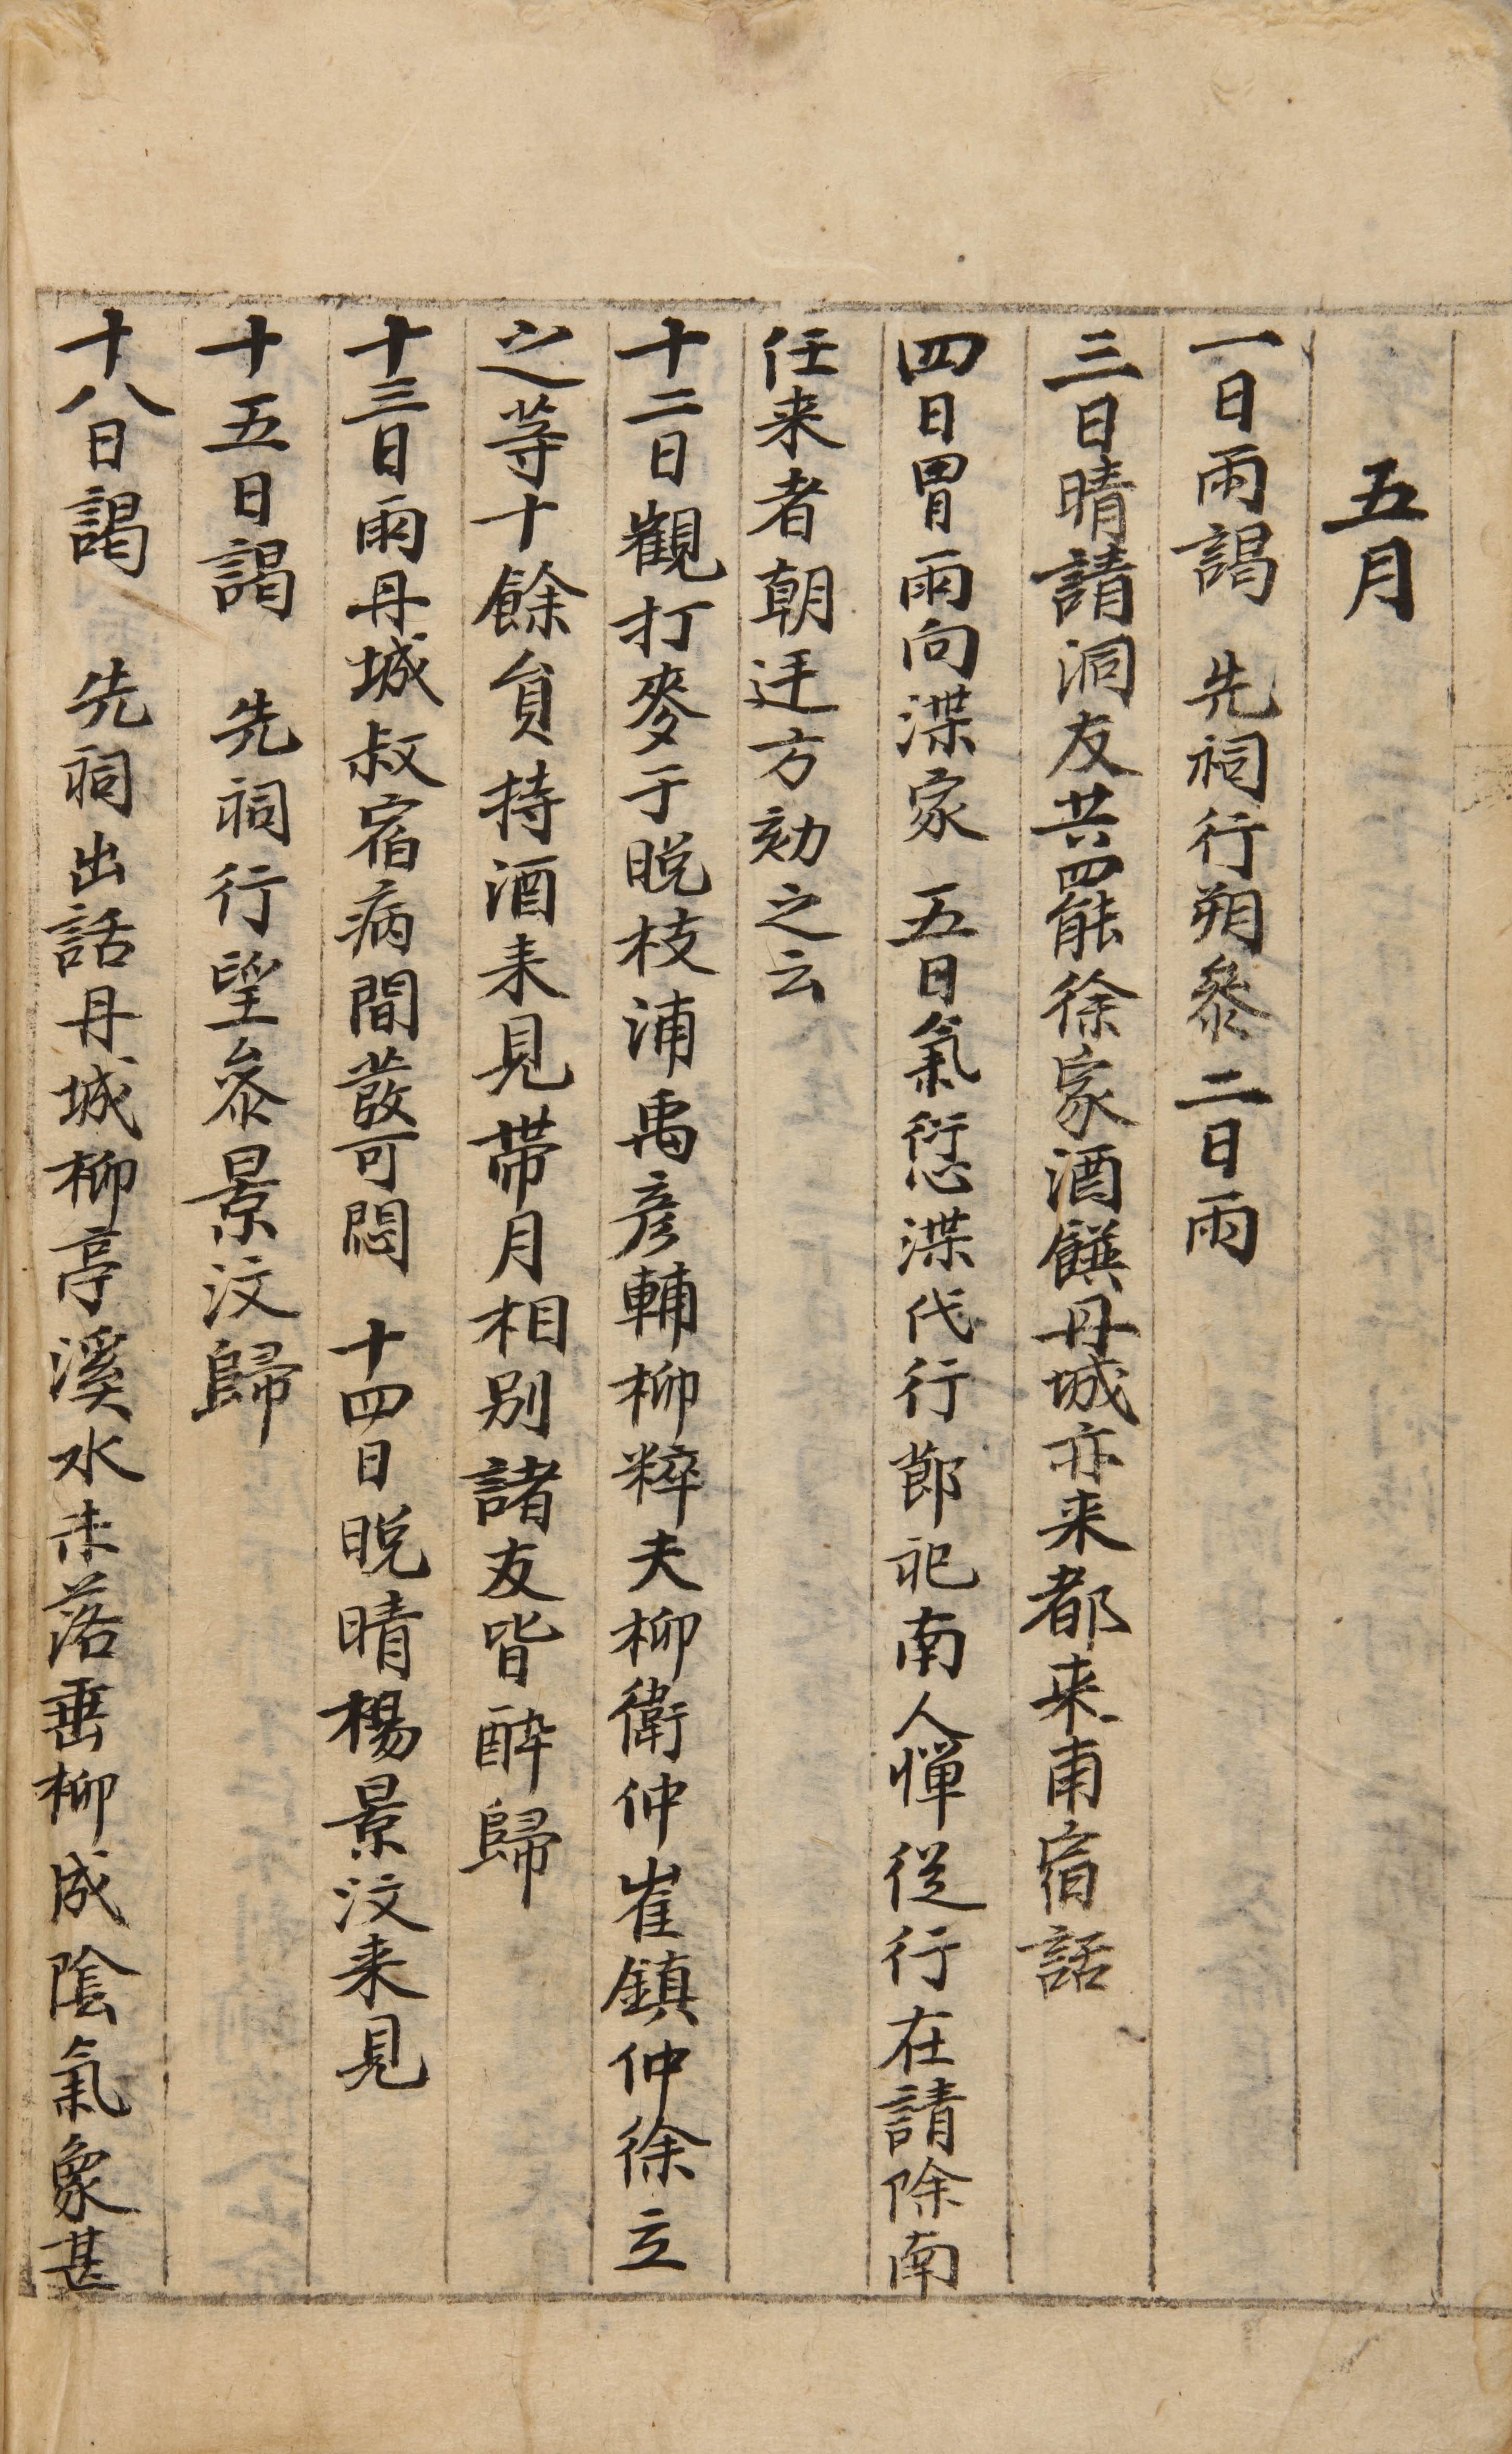 五月
一日雨謁 先祠行朔參 二日雨
三日晴請洞友共罷徐家酒饌丹城亦来都来甫宿話
四日冒雨向渫家 五日氣愆渫代行節祀南人憚從行在請除南
任来者朝廷方劾之云
十二日觀打麥于晩枝浦禹彦輔柳粹夫柳衛仲崔鎭仲徐立
之等十餘負持酒来見帶月相別諸友皆醉歸
十三日雨丹城叔宿病間發可悶 十四日晩晴楊景汶来見
十五日謁 先祠行望參景汶歸
十八日謁 先祠出話丹城柳亭溪水未落垂柳成陰氣象甚